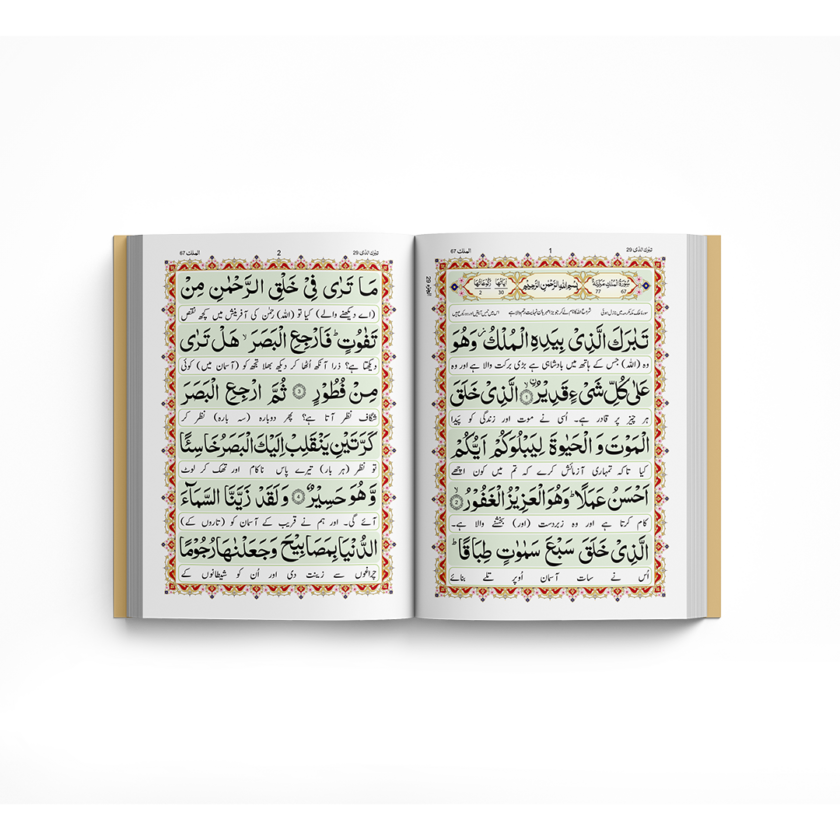 تبٰرك الذی 29
1
الملك 67
سُوْرَةُ الْمُلْكِ مَكِّيَّةٌ بِسْمِ اللّٰهِ الرَّحْمٰنِ الرَّحِيْمِ اٰيَاتُهَا رُكُوْعَاتُهَا
67 77 30 2
تَبٰرَكَ الَّذِیْ بِیَدِهِ الْمُلْكُ وَهُوَ
وہ (اللہ) جس کے ہاتھ میں بادشاہی ہے بڑی برکت والا ہے اور وہ
عَلٰی كُلِّ شَیْءٍ قَدِیْرُ ۙ﴿۱﴾ الَّذِیْ خَلَقَ
ہر چیز پر قادر ہے۔ اُسی نے موت اور زندگی کو پیدا
الْمَوْتَ وَ الْحَیٰوةَ لِیَبْلُوَكُمْ اَیُّكُمْ
کیا تاکہ تمہاری آزمائش کرے کہ تم میں کون اچھے
اَحْسَنُ عَمَلًا ؕ وَهُوَ الْعَزِیْزُ الْغَفُوْرُ ۙ﴿۲﴾
کام کرتا ہے اور وہ زبردست (اور) بخشنے والا ہے۔
الَّذِیْ خَلَقَ سَبْعَ سَمٰوٰتٍ طِبَاقًا ؕ
اُس نے سات آسمان اُوپر تلے بنائے
تبٰرك الذی 29
2
الملك 67
مَا تَرٰی فِیْ خَلْقِ الرَّحْمٰنِ مِنْ
(اے دیکھنے والے) کیا تو (اللہ) رحمٰن کی آفرینش میں کچھ نقص
تَفٰوُتٍ ؕ فَارْجِعِ الْبَصَرَ ۙ هَلْ تَرٰی
دیکھتا ہے؟ ذرا آنکھ اُٹھا کر دیکھ بھلا تجھ کو (آسمان میں) کوئی
مِنْ فُطُوْرٍ ﴿۳﴾ ثُمَّ ارْجِعِ الْبَصَرَ
شگاف نظر آتا ہے؟ پھر دوبارہ (سہ بارہ) نظر کر
كَرَّتَیْنِ یَنْقَلِبْ اِلَیْكَ الْبَصَرُ خَاسِئًا
تو نظر (ہر بار) تیرے پاس ناکام اور تھک کر لوٹ
وَّ هُوَ حَسِیْرٌ ﴿۴﴾ وَ لَقَدْ زَیَّنَّا السَّمَآءَ
آئے گی۔ اور ہم نے قریب کے آسمان کو (تاروں کے)
الدُّنْیَا بِمَصَابِیْحَ وَ جَعَلْنٰهَا رُجُوْمًا
چراغوں سے زینت دی اور اُن کو شیطانوں کے